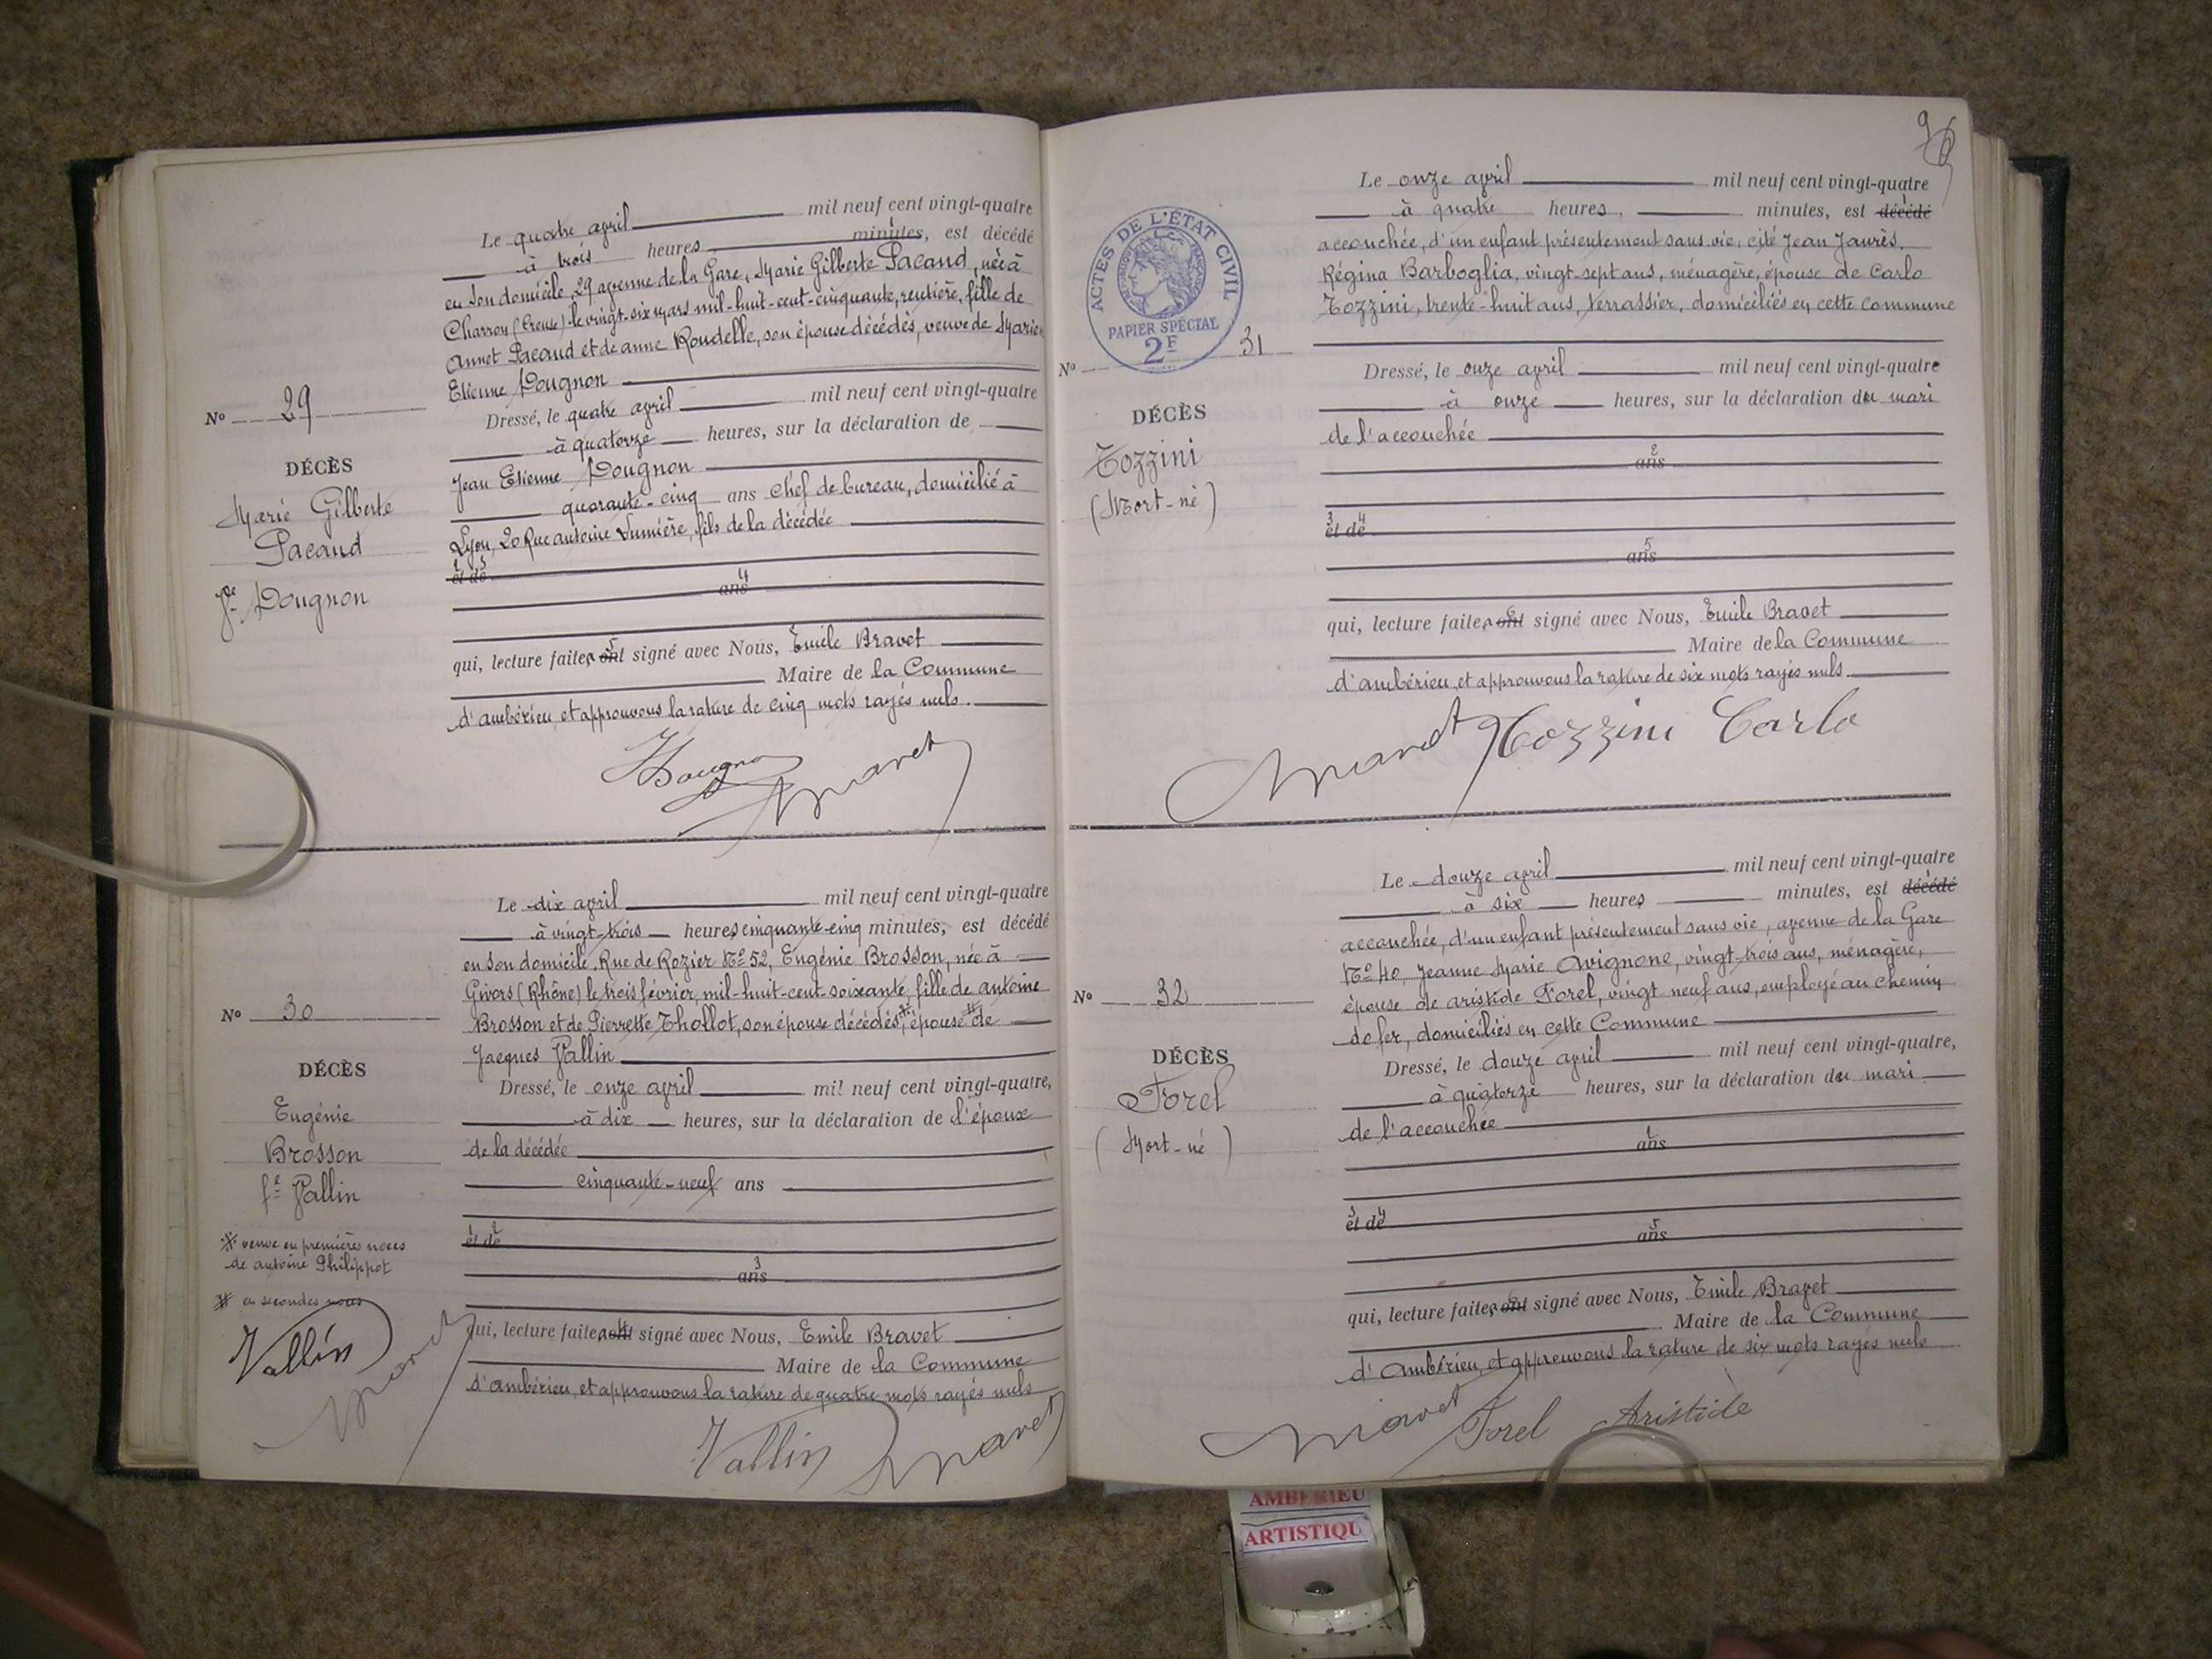 Le quatre avril mil neuf cent vingt-quatre
à trois heures minutes, est décédé
en son domicile, 29 avenue de la Gare, Marie Gilberte Pacaud, née à
Charron (Creuse) le vingt-six mars mil-huit-cent-cinquante, rentière, fille de
Annet Pacaud et de Anne Roudelle, son épouse décédés, veuve de Marien
Etienne Dougnon
Dressé, le quatre avril mil neuf cent vingt-quatre
à quatorze heures, sur la déclaration de
Jean Etienne Dougnon
quarante-cinq ans chef de bureau, domicilié à
Lyon, 20 Rue Antoine Lumière, fils de la décédée
et de
ans
qui, lecture faite, ont signé avec Nous, Emile Bravet
Maire de la Commune
d'Ambérieu et approuvons la rature de cinq mots rayés nuls.
No 29
DÉCÈS
Marie Gilberte
Pacaud
Ve Dougnon
Dougnon Bravet
Le dix avril mil neuf cent vingt-quatre
à vingt-trois heures cinquante-cinq minutes, est décédé
en son domicile, Rue de Rozier No 52, Eugénie Brosson, née à
Givors (Rhône) le trois février, mil-huit-cent-soixante, fille de Antoine
Brosson et de Pierrette Thollot, son épouse décédés, épouse de
Jacques Vallin
Dressé, le onze avril mil neuf cent vingt-quatre,
à dix heures, sur la déclaration de l'époux
de la décédée
cinquante-neuf ans
et de
ans
qui, lecture faite, ont signé avec Nous, Emile Bravet
Maire de la Commune
d'Ambérieu, et approuvons la rature de quatre mots rayés nuls
No 30
DÉCÈS
Eugénie
Brosson
fe Vallin
veuve en premières noces
de Antoine Philippot
en secondes noces
Vallin Bravet
Vallin Bravet
96
Le onze avril mil neuf cent vingt-quatre
à quatre heures, minutes, est décédé
accouchée, d'un enfant présentement sans vie, cité Jean Jaurès,
Régina Barboglia, vingt-sept ans, ménagère, épouse de Carlo
Tozzini, trente-huit ans, terrassier, domiciliés en cette commune
Dressé, le onze avril mil neuf cent vingt-quatre
à onze heures, sur la déclaration du mari
de l'accouchée
ans
et de
ans
qui, lecture faite, ont signé avec Nous, Emile Bravet
Maire de la Commune
d'Ambérieu, et approuvons la rature de six mots rayés nuls
ACTES DE L'ÉTAT CIVIL
RÉPUBLIQUE FRANÇAISE
PAPIER SPÉCIAL
2F
No 31
DÉCÈS
Tozzini
(Mort-né)
Bravet Tozzini Carlo
Le douze avril mil neuf cent vingt-quatre
à six heures minutes, est décédé
accouchée, d'un enfant présentement sans vie, avenue de la Gare
No 40, Jeanne Marie Avignone, vingt-trois ans, ménagère,
épouse de Aristide Forel, vingt neuf ans, employé au chemin
de fer, domiciliés en cette Commune
Dressé, le douze avril mil neuf cent vingt-quatre,
à quatorze heures, sur la déclaration du mari
de l'accouchée
ans
et de
ans
qui, lecture faite, ont signé avec Nous, Emile Bravet
Maire de la Commune
d'Ambérieu, et approuvons la rature de six mots rayés nuls
No 32
DÉCÈS
Forel
(Mort-né)
Bravet Forel Aristide
AMBERIEU
ARTISTIQU